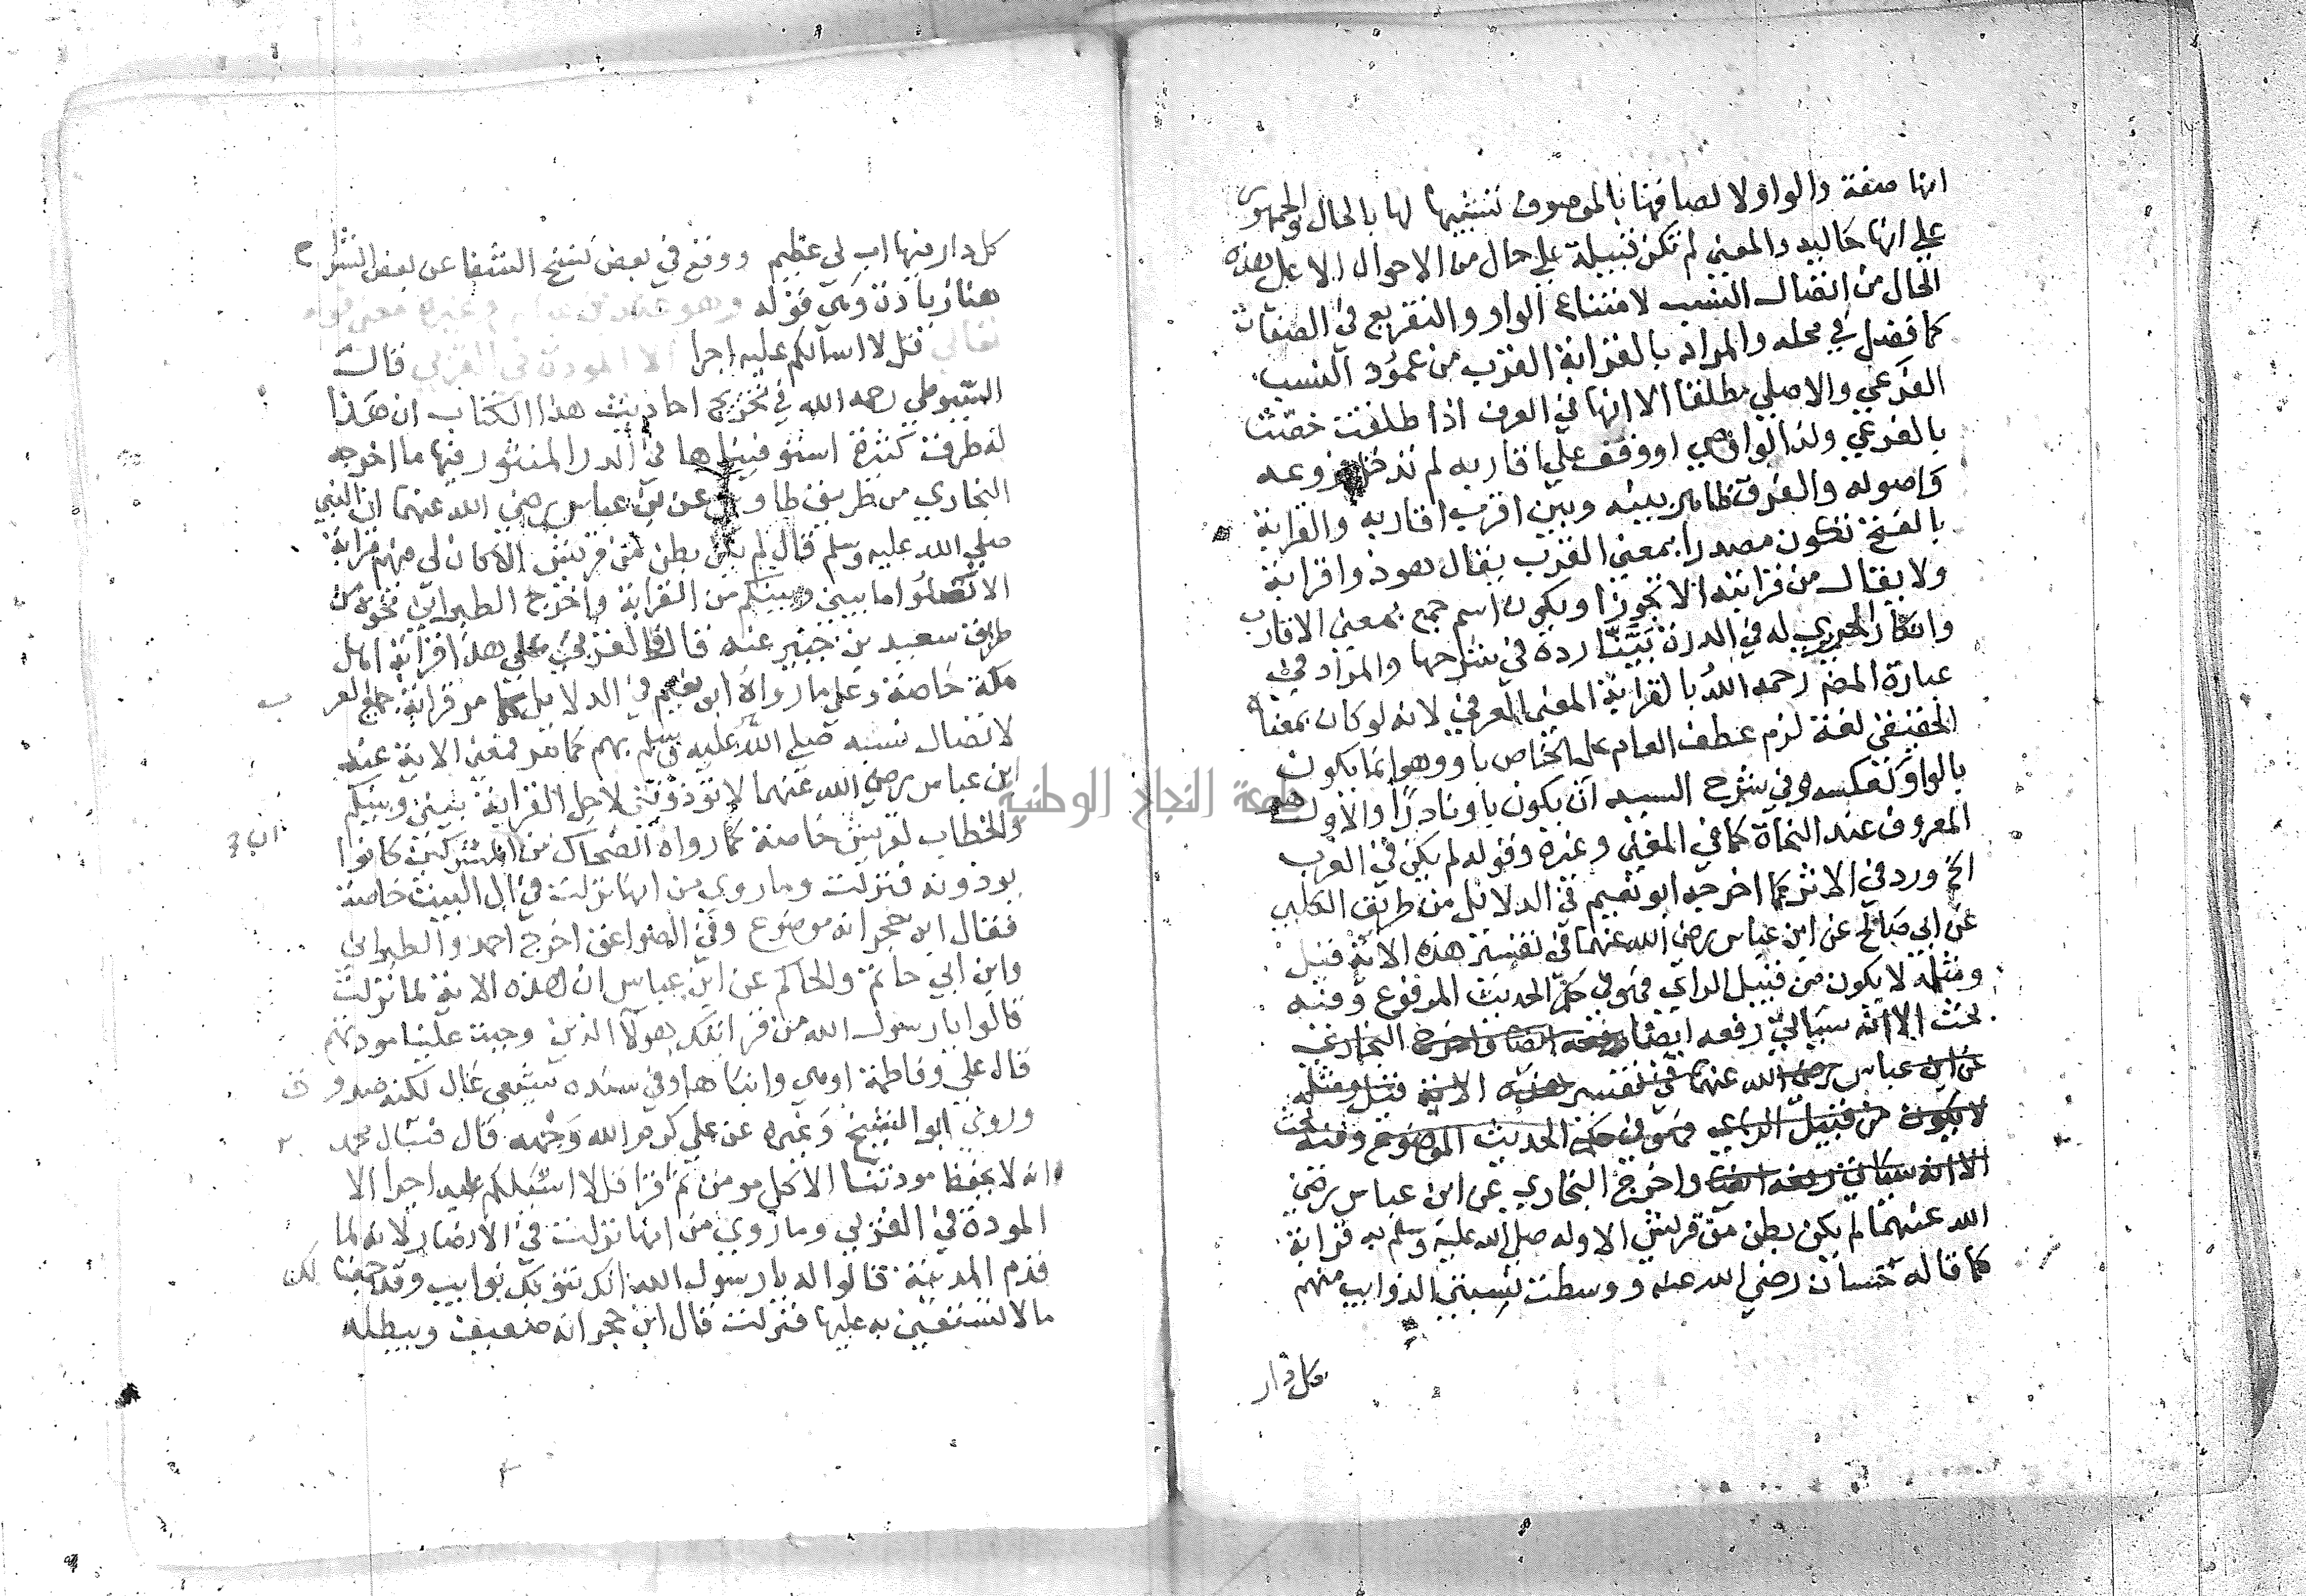 انها صفة والواو لالصاقها بالموصوف تشبيها لها بالحال والجمهور
علي انها حاليه والمعني لم تكن قبيلة علي حال من الاحوال الا علي هذه
الحال من اتصال النسب لامتناع الواو والتفريع في الصفات
كما فصل في محله والمراد بالقرابة القرب من عمود النسب
الفرعي والاصلي مطلقا الا انها في العرف اذا طلقت خصت
بالفرعي ولذا لو اوصي او وقف علي اقاربه لم تدخل فروعه
واصوله والفرق ظاهر بينه وبين اقرب اقاربه والقرابة
بالفتح تكون مصدرا بمعني القرب يقال هو ذو اقرابة
ولا يقال من قرابته الا تجوزا ويكون اسم جمع بمعني الاقارب
وانكار الحريري له في الدرة بينا رده في شرحها والمراد في
عبارة المص رحمه الله بالقرابة المعني العرفي لانه لو كان بمعناه
الحقيقي لغة لزم عطف العام علي الخاص باو وهو انما يكون
بالواو كعكسه وفي شرح السيد ان يكون باو نادرا والاول هو
المعروف عند النحاة كما في المغني وغيره وقوله لم يكن في العرب
الخ ورد في الاثر كما اخرجه ابو نعيم في الدلائل من طريق الكلبي
عن ابي صالح عن ابن عباس رضي الله عنهما في تفسير هذه الاية قيل
ومثله لا يكون من قبيل الراي فهو في حكم الحديث المرفوع وفيه
بحث الا انه سياتي رفعه ايضا رفعه ايضا واخرج البخاري
عن ابن عباس رضي الله عنهما في تفسير هذه الاية قيل ومثله
لا يكون من قبيل الراي فهو في حكم الحديث الموضوع وفيه بحث
الا انه سياتي رفعه ايضا واخرج البخاري عن ابن عباس رضي
الله عنهما لم يكن بطن من قريش الا وله صلي الله عليه وسلم به قرابة
كما قاله حسان رضي الله عنه ووسطت نسبتي الذوايب منهم
وكل دار
كل دار فيها اب لي عظيم ووقع في بعض نسخ الشفا عن بعض الشراح
هنا زيادة وهي قوله وهو عند ابن عباس وغيره معني قوله
تعالي قل لا اسالكم عليه اجرا الا المودة في القربي قال
السيوطي رحمه الله في تخريج احاديث هذا الكتاب ان هذا
له طرق كثيرة استوفيناها في الدر المنثور فيها ما اخرجه
البخاري من طريق طاوس عن ابن عباس رضي الله عنهما ان النبي
صلي الله عليه وسلم قال لم يكن بطن من قريش الا كان لي منهم قرابة
الا تصلوا ما بيني وبينكم من القرابة واخرج الطبراني نحوه من
طريق سعيد بن جبير عنه قال فالقربي علي هذا قرابة اهل
مكة خاصة وعلي ما رواه ابو نعيم في الدلايل هو قرابة جميع العرب
لاتصال نسبه صلي الله عليه وسلم بهم كما مر فمعني الاية عند
ابن عباس رضي الله عنهما لا توذوني لاجل القرابة بيني وبينكم
والخطاب لقريش خاصة كما رواه الضحاك من ان المشركين كانوا
يوذونه فنزلت وما روي من انها نزلت في ال البيت خاصة
فقال ابن حجر انه موضوع وفي الصواعق اخرج احمد والطبراني
وابن ابي حاتم والحاكم عن ابن عباس ان هذه الاية لما نزلت
قالوا يا رسول الله من قرابتك هولا الذين وجبت علينا مودتهم
قال علي وفاطمة وابناهما وفي سنده شيعي غال لكنه صدوق
وروي ابو الشيخ وغيره عن علي كرم الله وجهه قال
انه لا يحفظ مودتنا الا كل مومن ثم قرا قل لا اسئلكم عليه اجرا الا
المودة في القربي وما روي من انها نزلت في الانصار لانه لما
قدم المدينة قالوا له يا رسول الله انك تنوبك نوايب وقد جمعنا لك
ما لا تستعين به عليها فنزلت قال ابن حجر انه ضعيف ويبطله
جامعة النجاح الوطنية